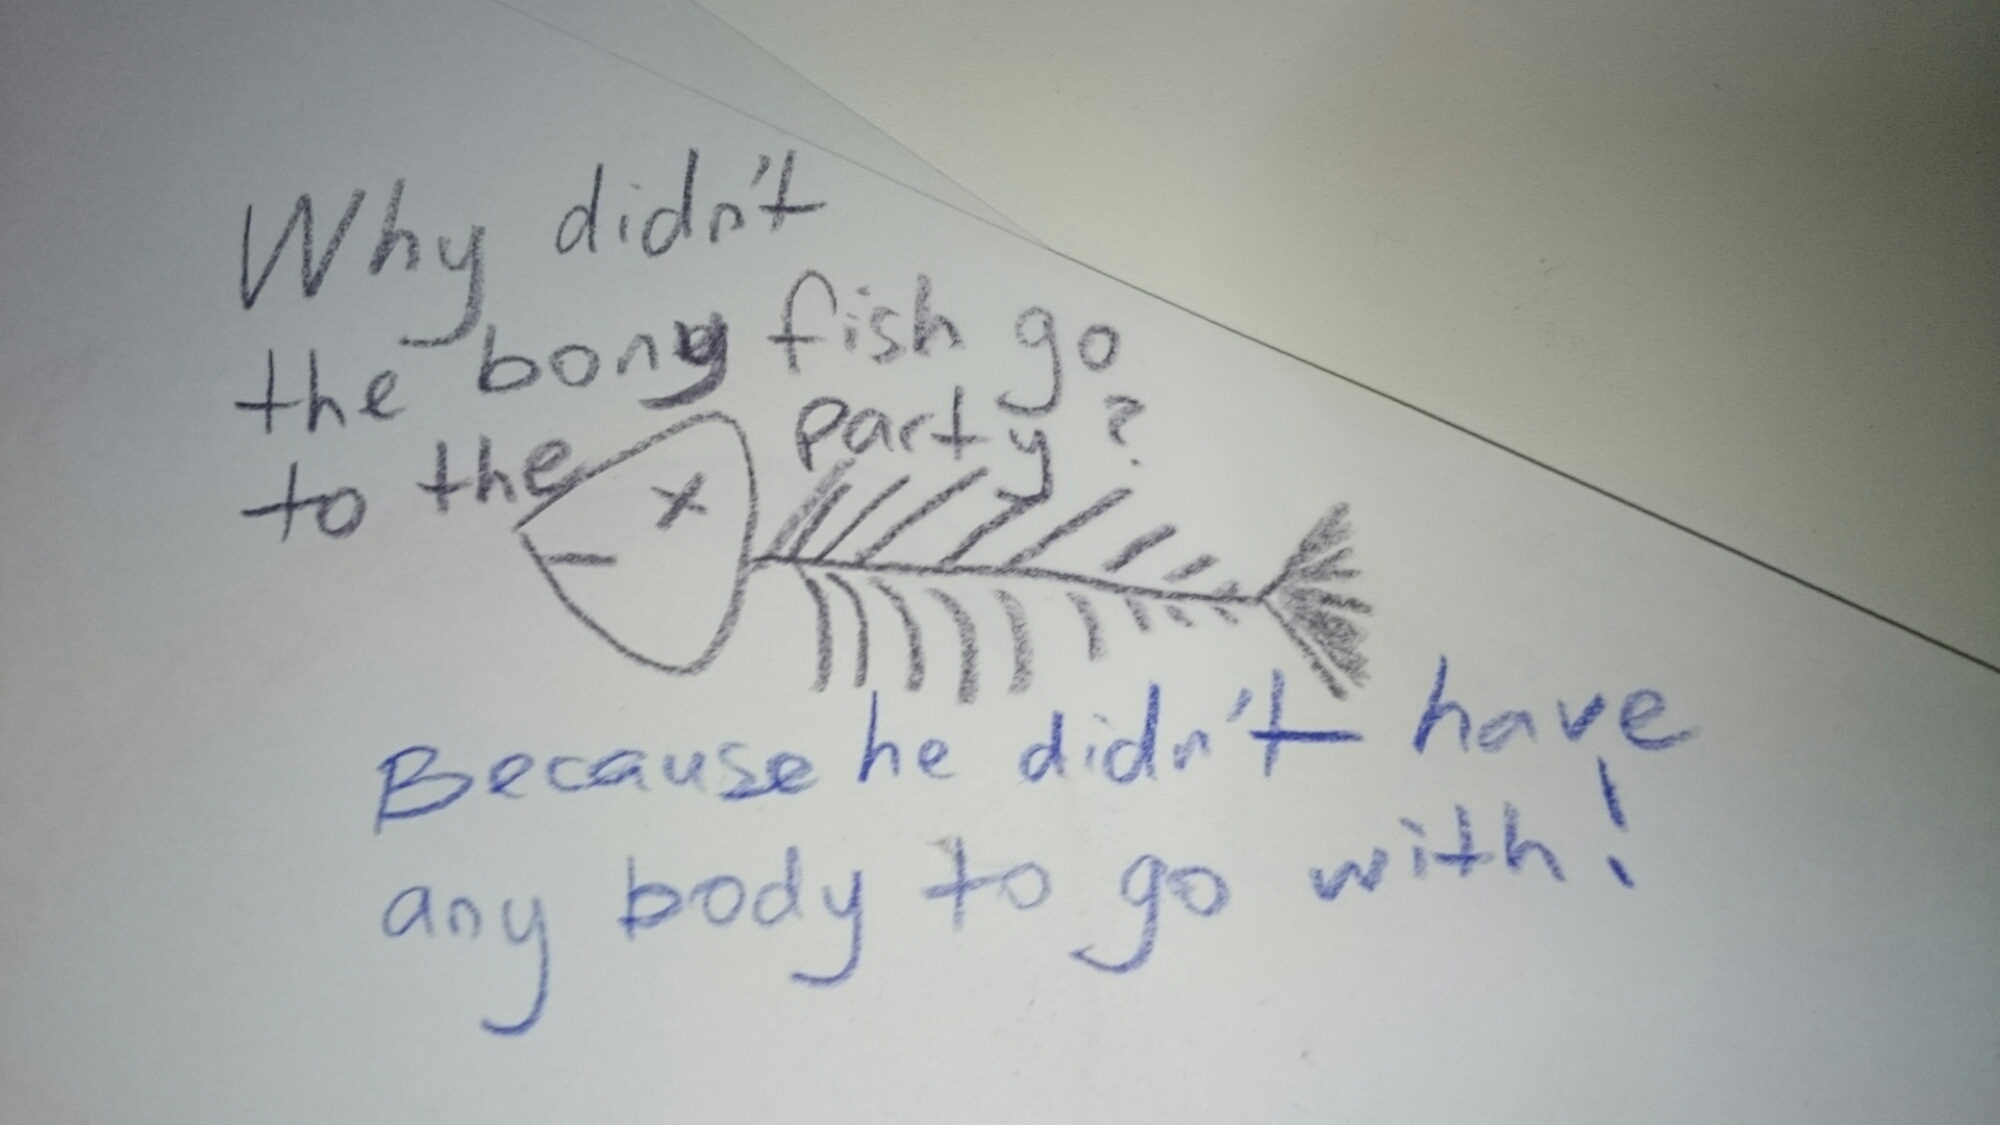 Why didn't
the bony fish go
to the party?
Because he didn't have
any body to go with!